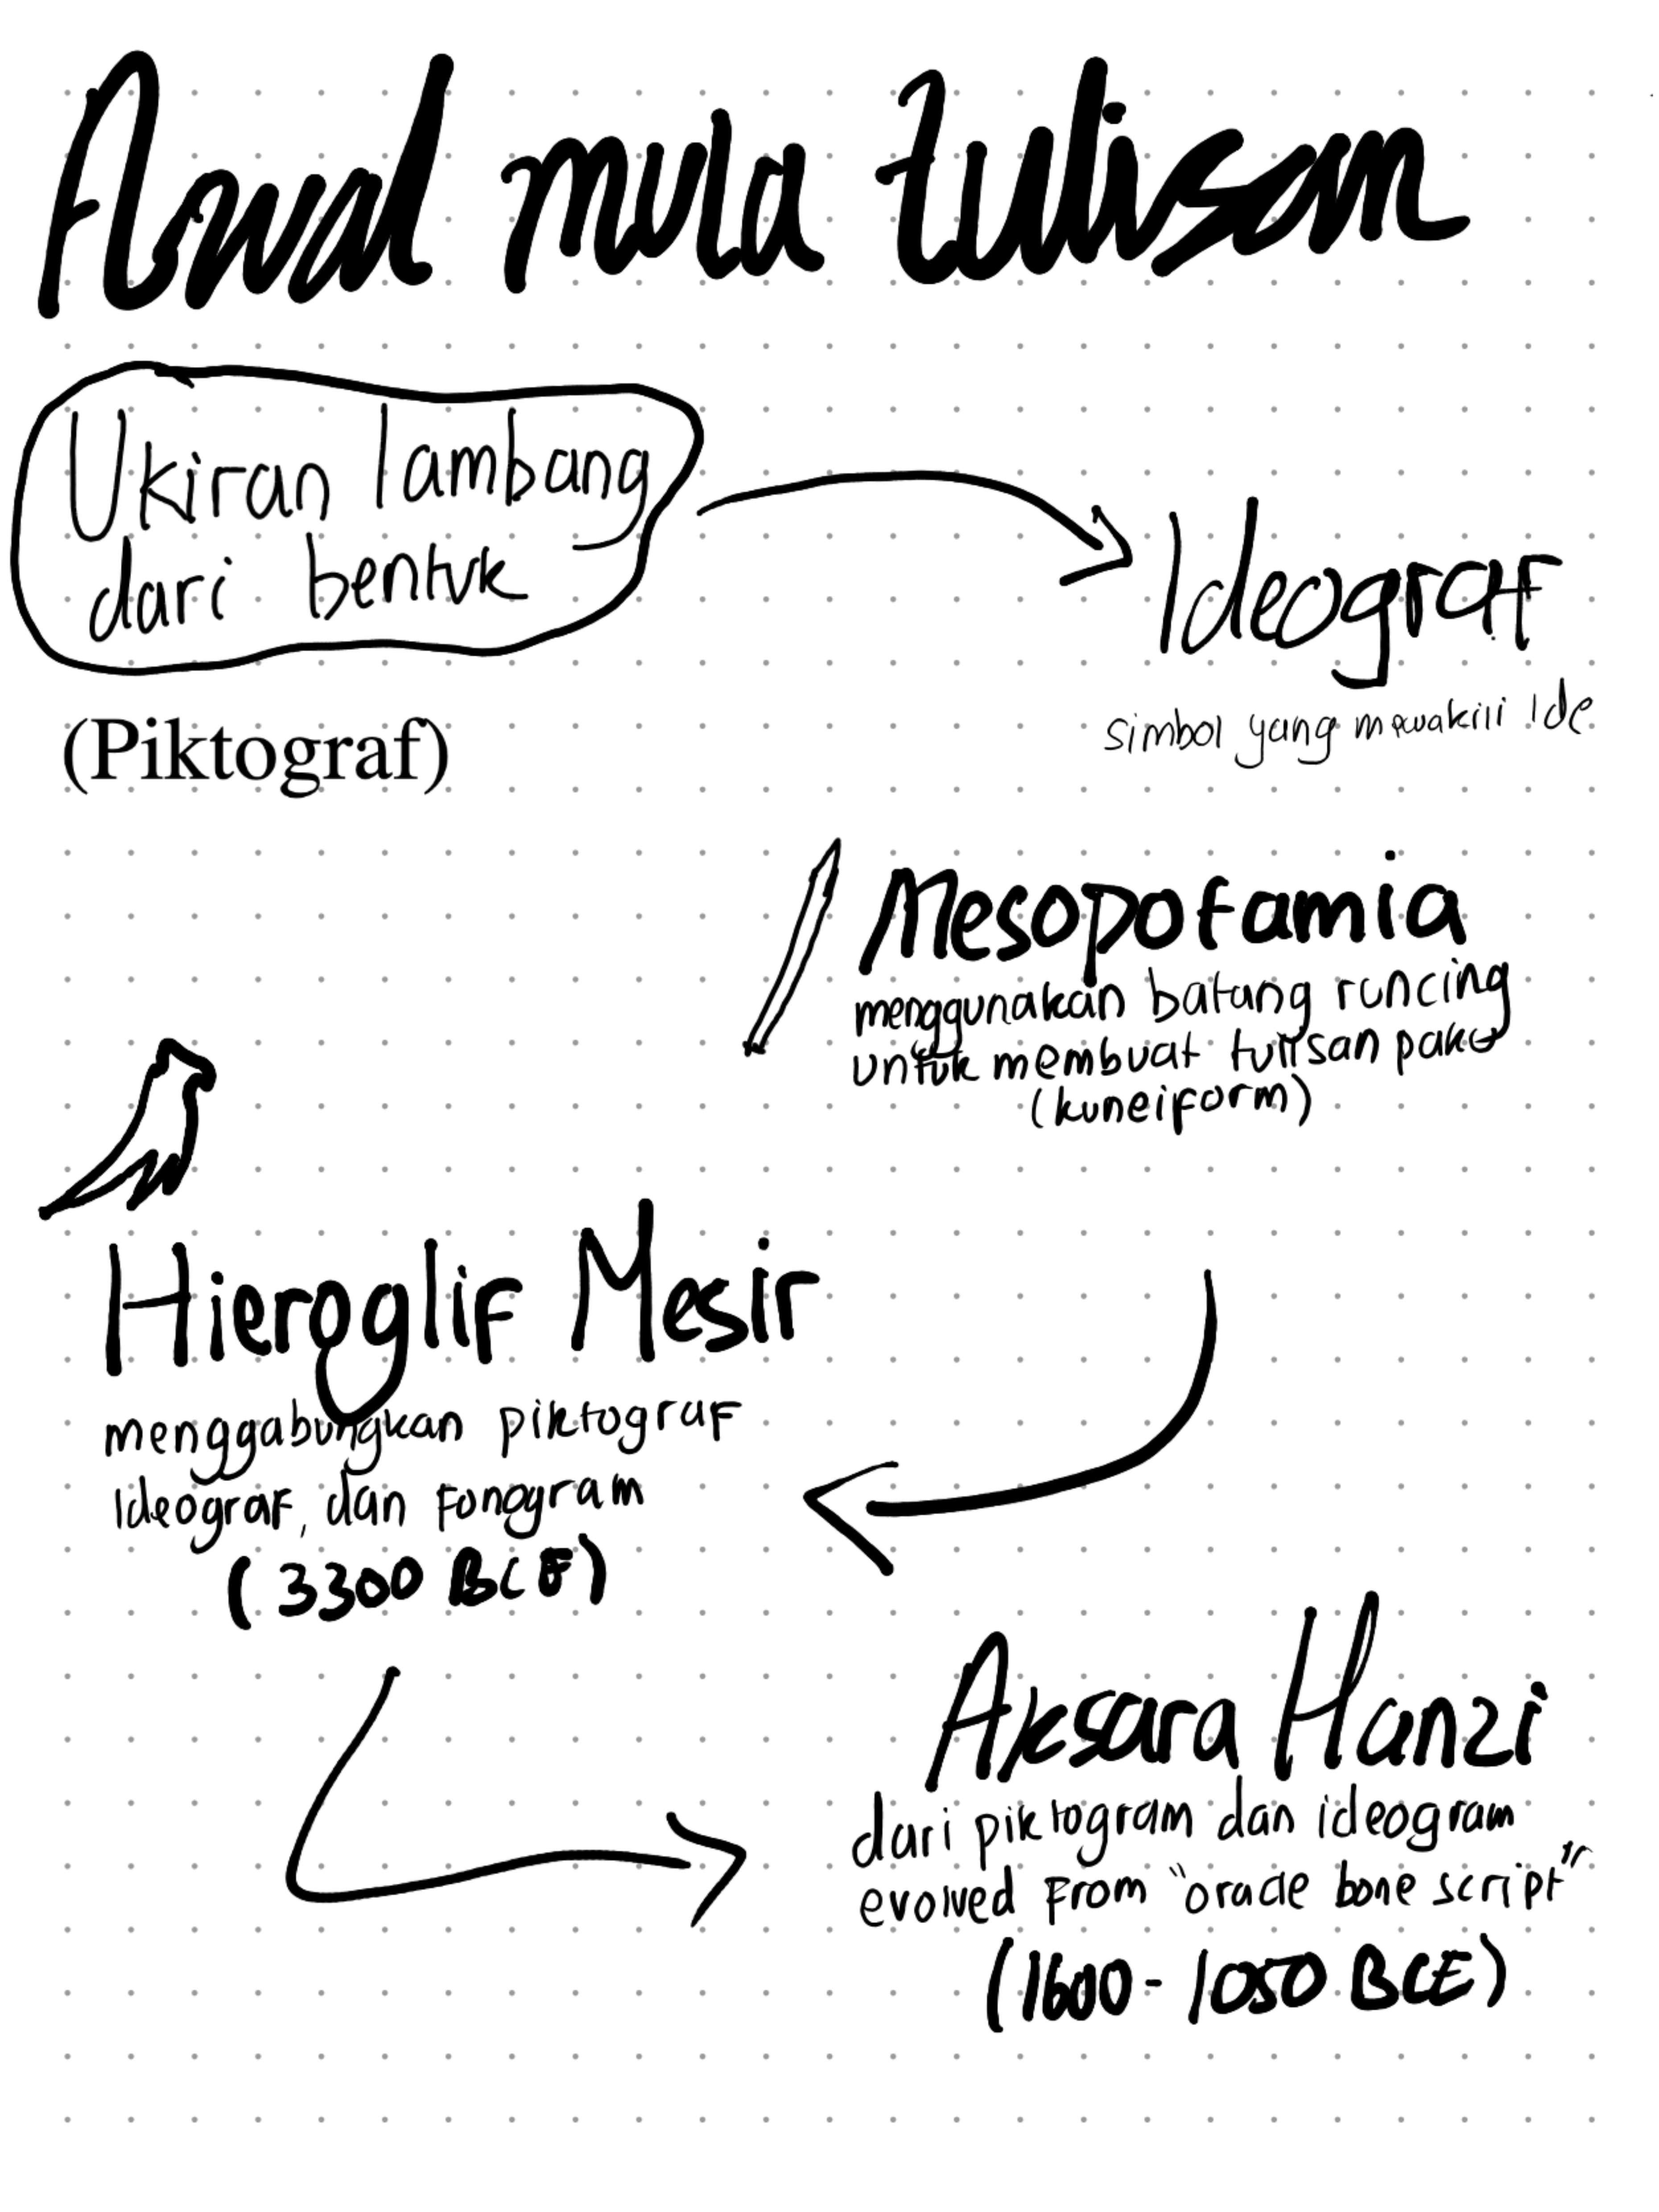 Awal mula tulisan
Ukiran lambang
dari bentuk
Ideograf
(Piktograf)
simbol yang mewakili Ide
Mesopotamia
menggunakan batang runcing
untuk membuat tulisan paku
(kuneiform)
Hieroglif Mesir
menggabungkan piktograf
Ideograf, dan Fonogram
(3300 BCE)
Aksara Hanzi
dari piktogram dan ideogram
evolved From "oracle bone script"
(1600-1050 BCE)